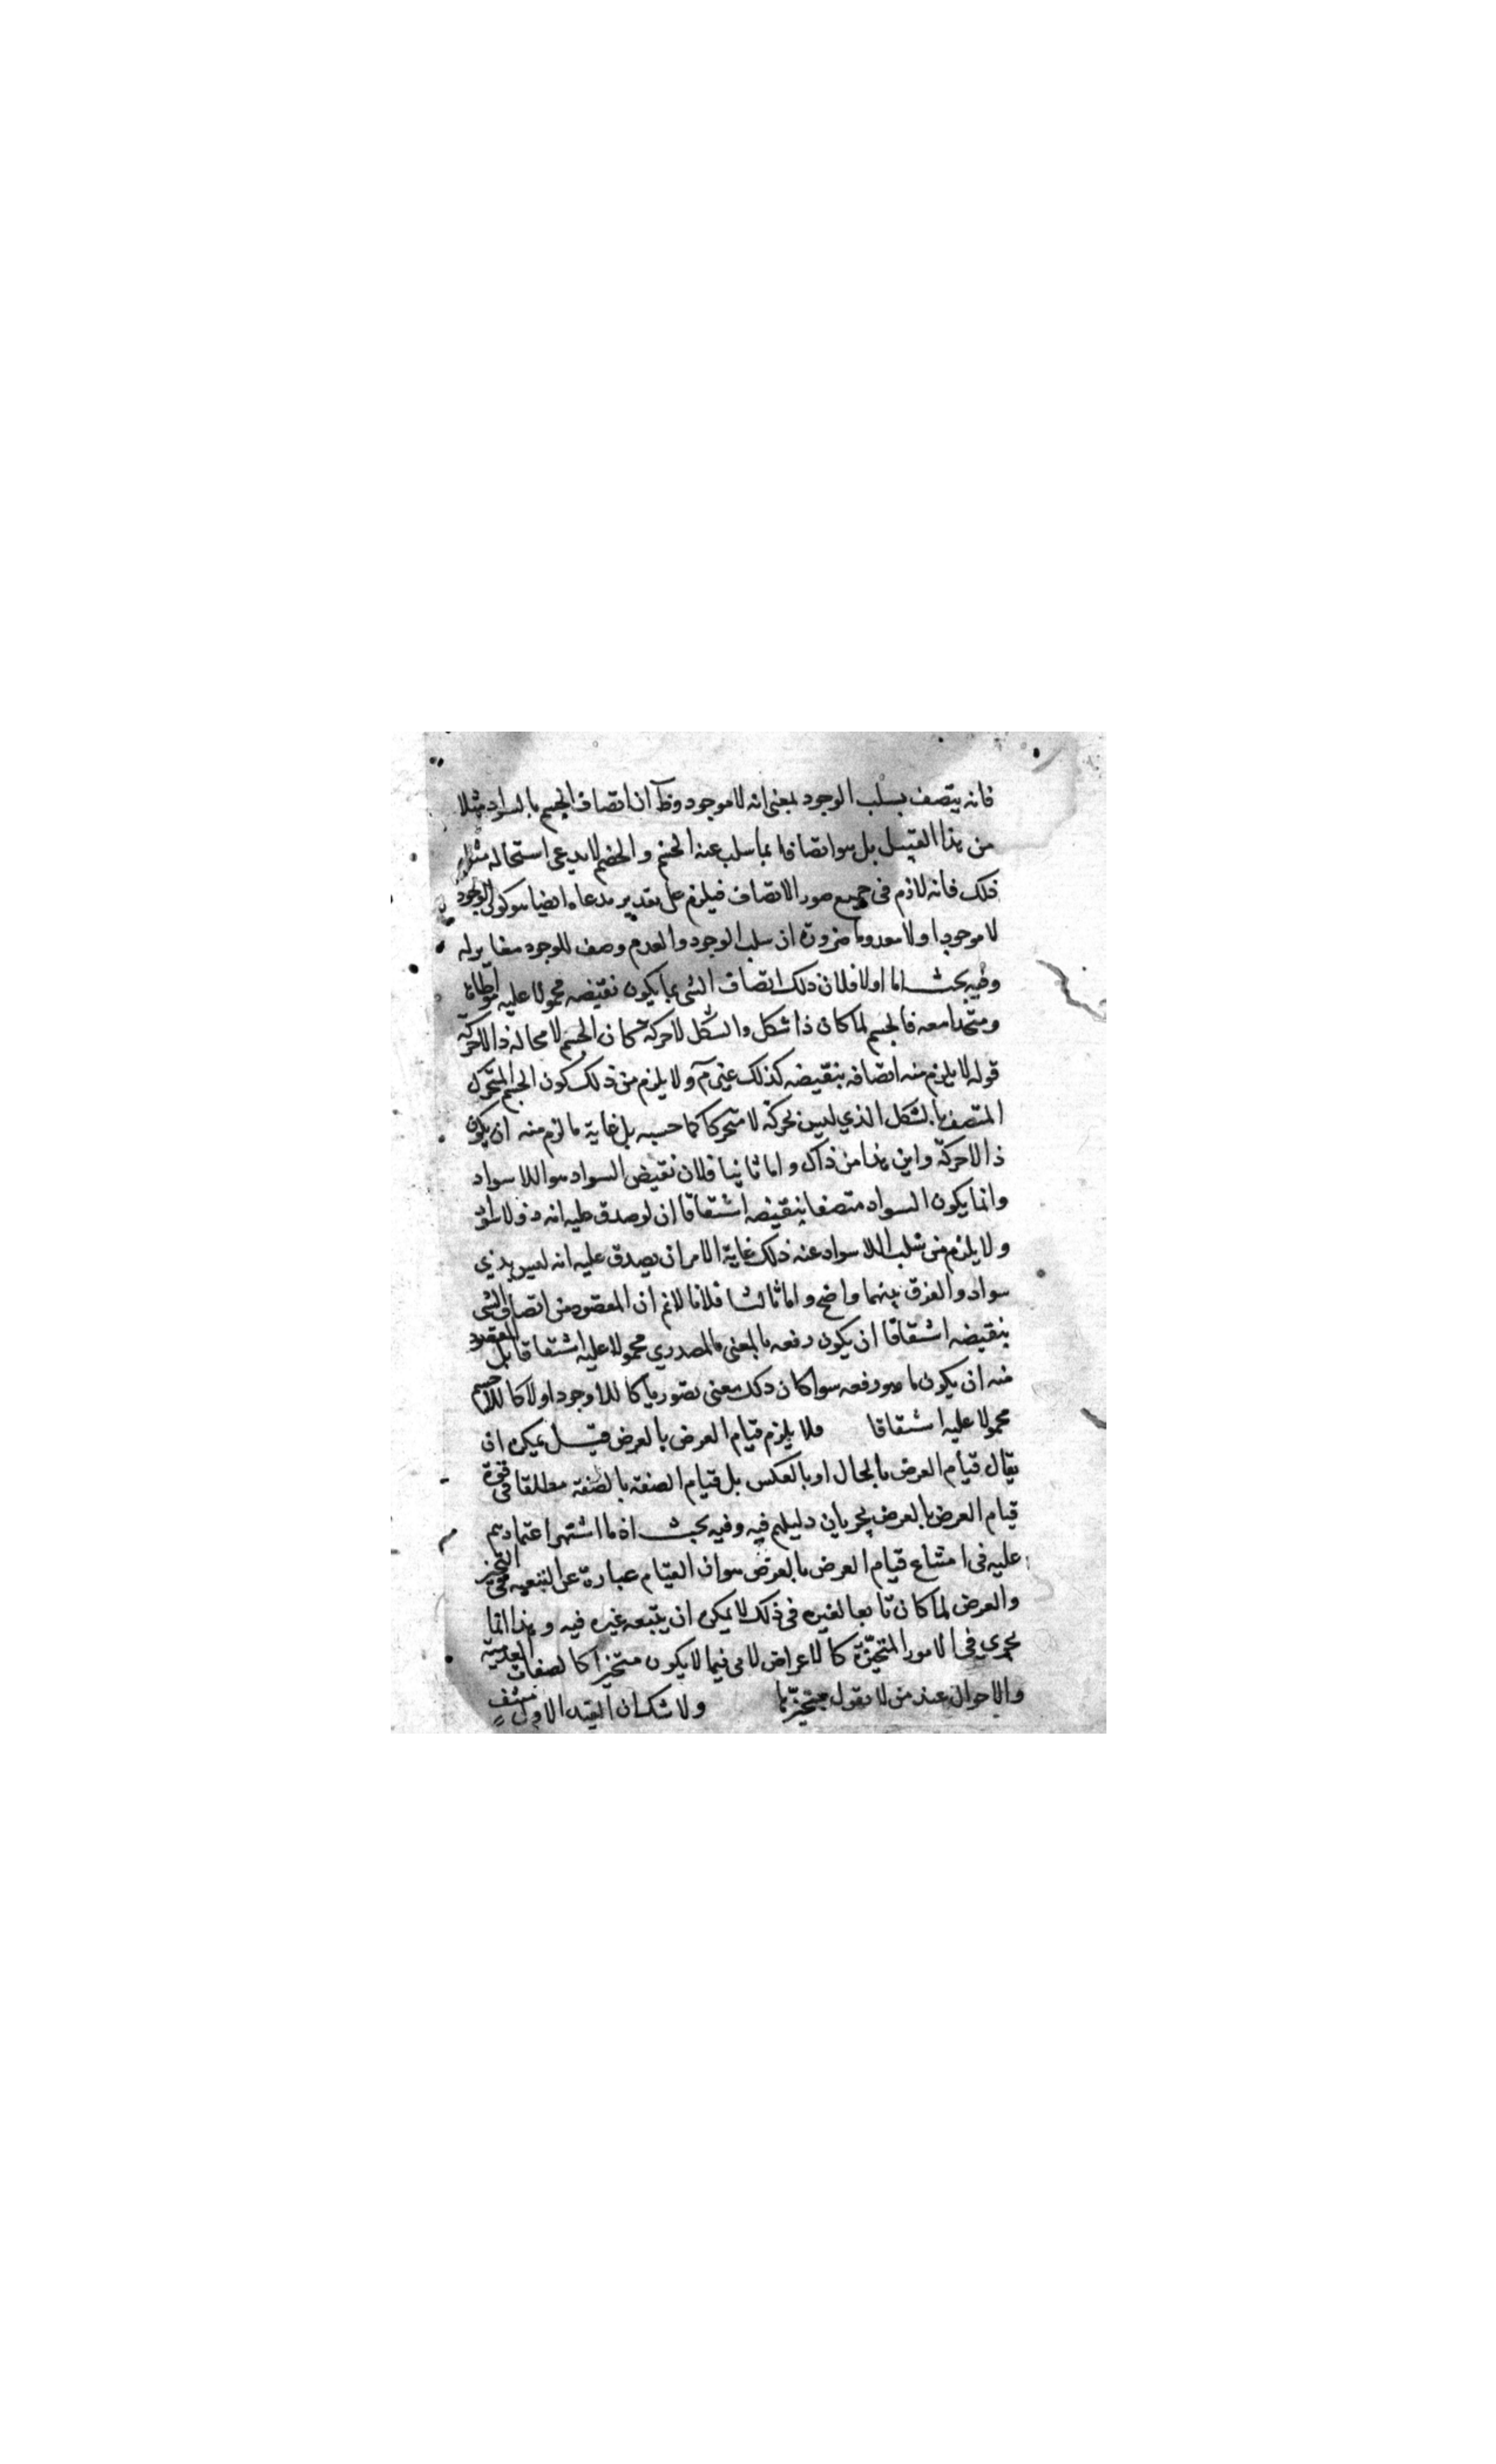 فانه يتصف بسلب الوجود بمعنى انه لا موجود وظ آن اتصاف الجسم بالسواد مثلا
من هذا القبيل بل هو اتصاف بما سلب عنه الجسم والخصم لا يدعى استحالة مثل
ذلك فانه لازم فى جميع صور الاتصاف فيلزم على تقدير مدعاه ايضا هو كون الوجود
لا موجودا ولا معدوما ضرورة ان سلب الوجود والعدم وصف للوجود مغاير له
وفيه بحث اما اولا فلان ذلك اتصاف الشى بما يكون نقيضه محمولا عليه مواطاة
ومتحدا معه فالجسم لما كان ذا شكل والشكل لا حركة كان الجسم لا محالة ذا لا حركة
قوله لا يلزم منه اتصافه بنقيضه كذلك غير مآ ولا يلزم من ذلك كون الجسم المتحرك
المتصف بالشكل الذي ليس بحركة لا متحركا كما حسبه بل غاية ما لزم منه ان يكون
ذا لا حركة واين هذا من ذاك واما ثانيا فلان نقيض السواد هو اللا سواد
وانما يكون السواد متصفا بنقيضه اشتقاقا ان لو صدق عليه انه ذو لا سواد
ولا يلزم من سلب اللا سواد عنه ذلك غاية الامر ان يصدق عليه انه ليس بذي
سواد والفرق بينهما واضح واما ثالثا فلانا لانم ان المقصود من اتصاف الشى
بنقيضه اشتقاقا ان يكون رفعه بالمعنى المصدري محمولا عليه اشتقاقا بل المقصود
منه ان يكون ما هو رفعه سوا كان ذلك معنى تصوريا كاللاوجود اولا كاللاجسم
محمولا عليه اشتقاقا فلا يلزم قيام العرض بالعرض قيل يمكن ان
يقال قيام العرض بالحال او بالعكس بل قيام الصفة بالصفة مطلقا فى قوة
قيام العرض بالعرض بجريان دليلهم فيه وفيه بحث اذ ما اشتهر اعتمادهم
عليه فى امتناع قيام العرض بالعرض هو ان القيام عبارة عن التبعيه فى التحيز
والعرض لما كان تابعا لغيره فى ذلك لا يمكن ان يتبعه غيره فيه وهذا انما
يجري فى الامور المتحيزة كالاعراض لا فى فيما لا يكون متحيزا كالصفات العدمية
والاحوال عند من لا يقول بتحيزها ولا شك ان القيد الاول منتف